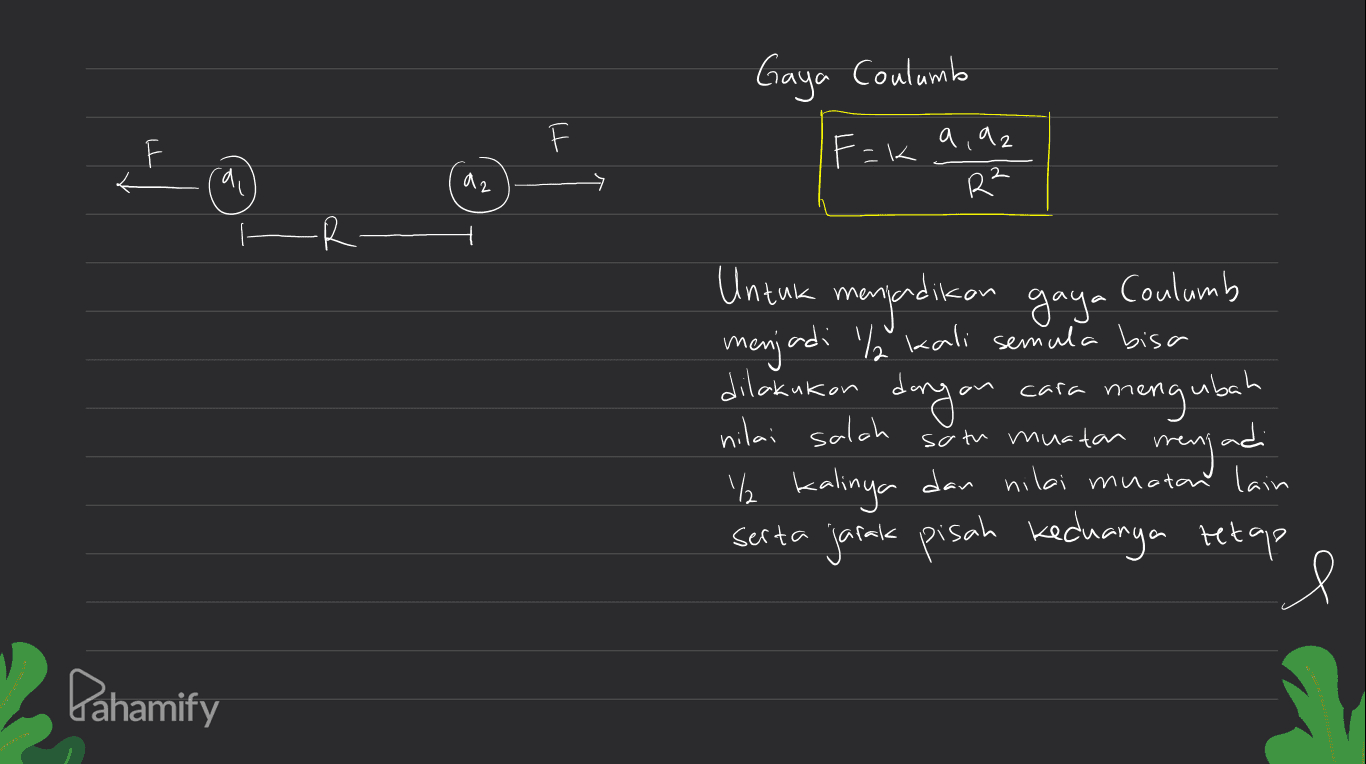 Gaya Coulumb
F = k q1 q2 / R²
F q1 q2 F
R
Untuk menjadikan gaya Coulumb
menjadi 1/2 kali semula bisa
dilakukan dengan cara mengubah
nilai salah satu muatan menjadi
1/2 kalinya dan nilai muatan lain
serta jarak pisah keduanya tetap
Pahamify